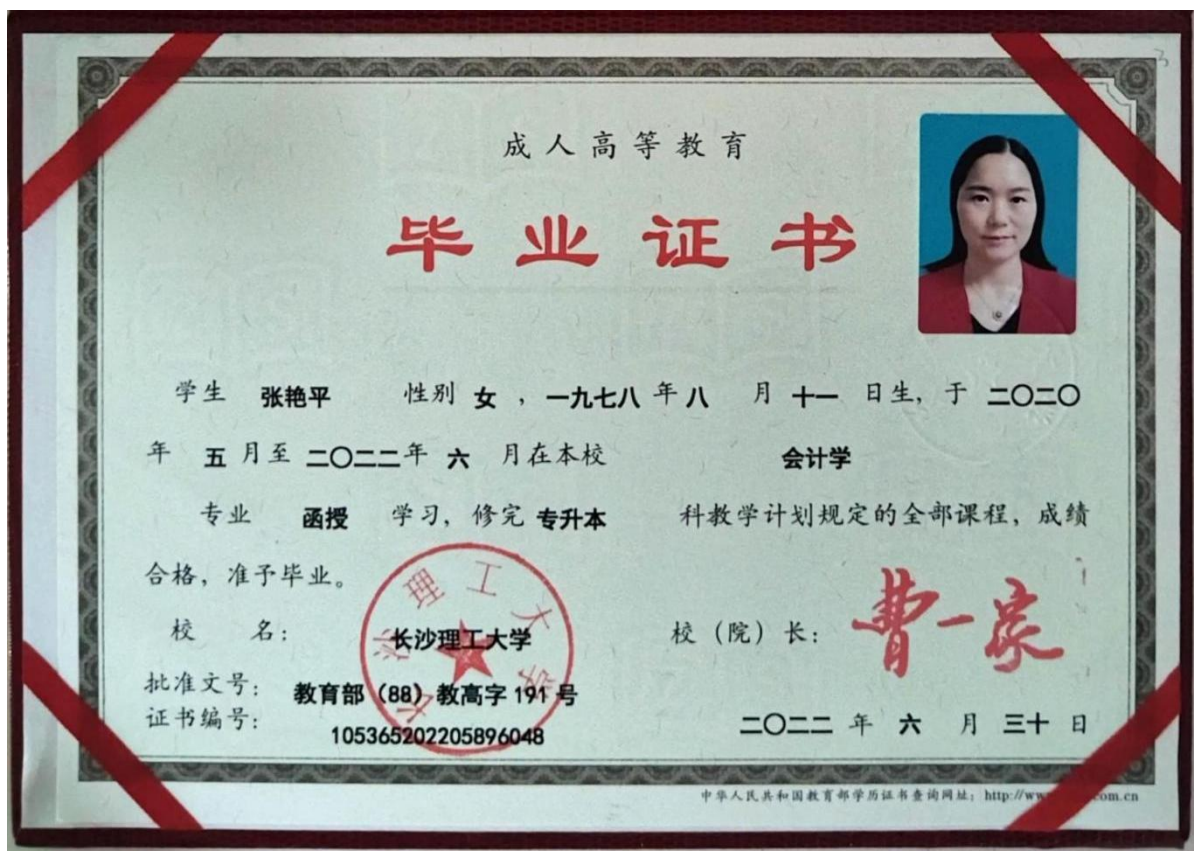 成人高等教育
毕业证书
学生 张艳平 性别 女 ，一九七八 年 八 月 十一 日生，于 二〇二〇
年 五 月至 二〇二二年 六 月在本校 会计学
专业 函授 学习，修完 专升本 科教学计划规定的全部课程，成绩
合格，准予毕业。
校 名： 长沙理工大学 校（院）长： 曹一家
长沙理工大学
批准文号： 教育部（88）教高字 191 号
证书编号： 105365202205896048
二〇二二 年 六 月 三十 日
中华人民共和国教育部学历证书查询网址：http://ww com.cn